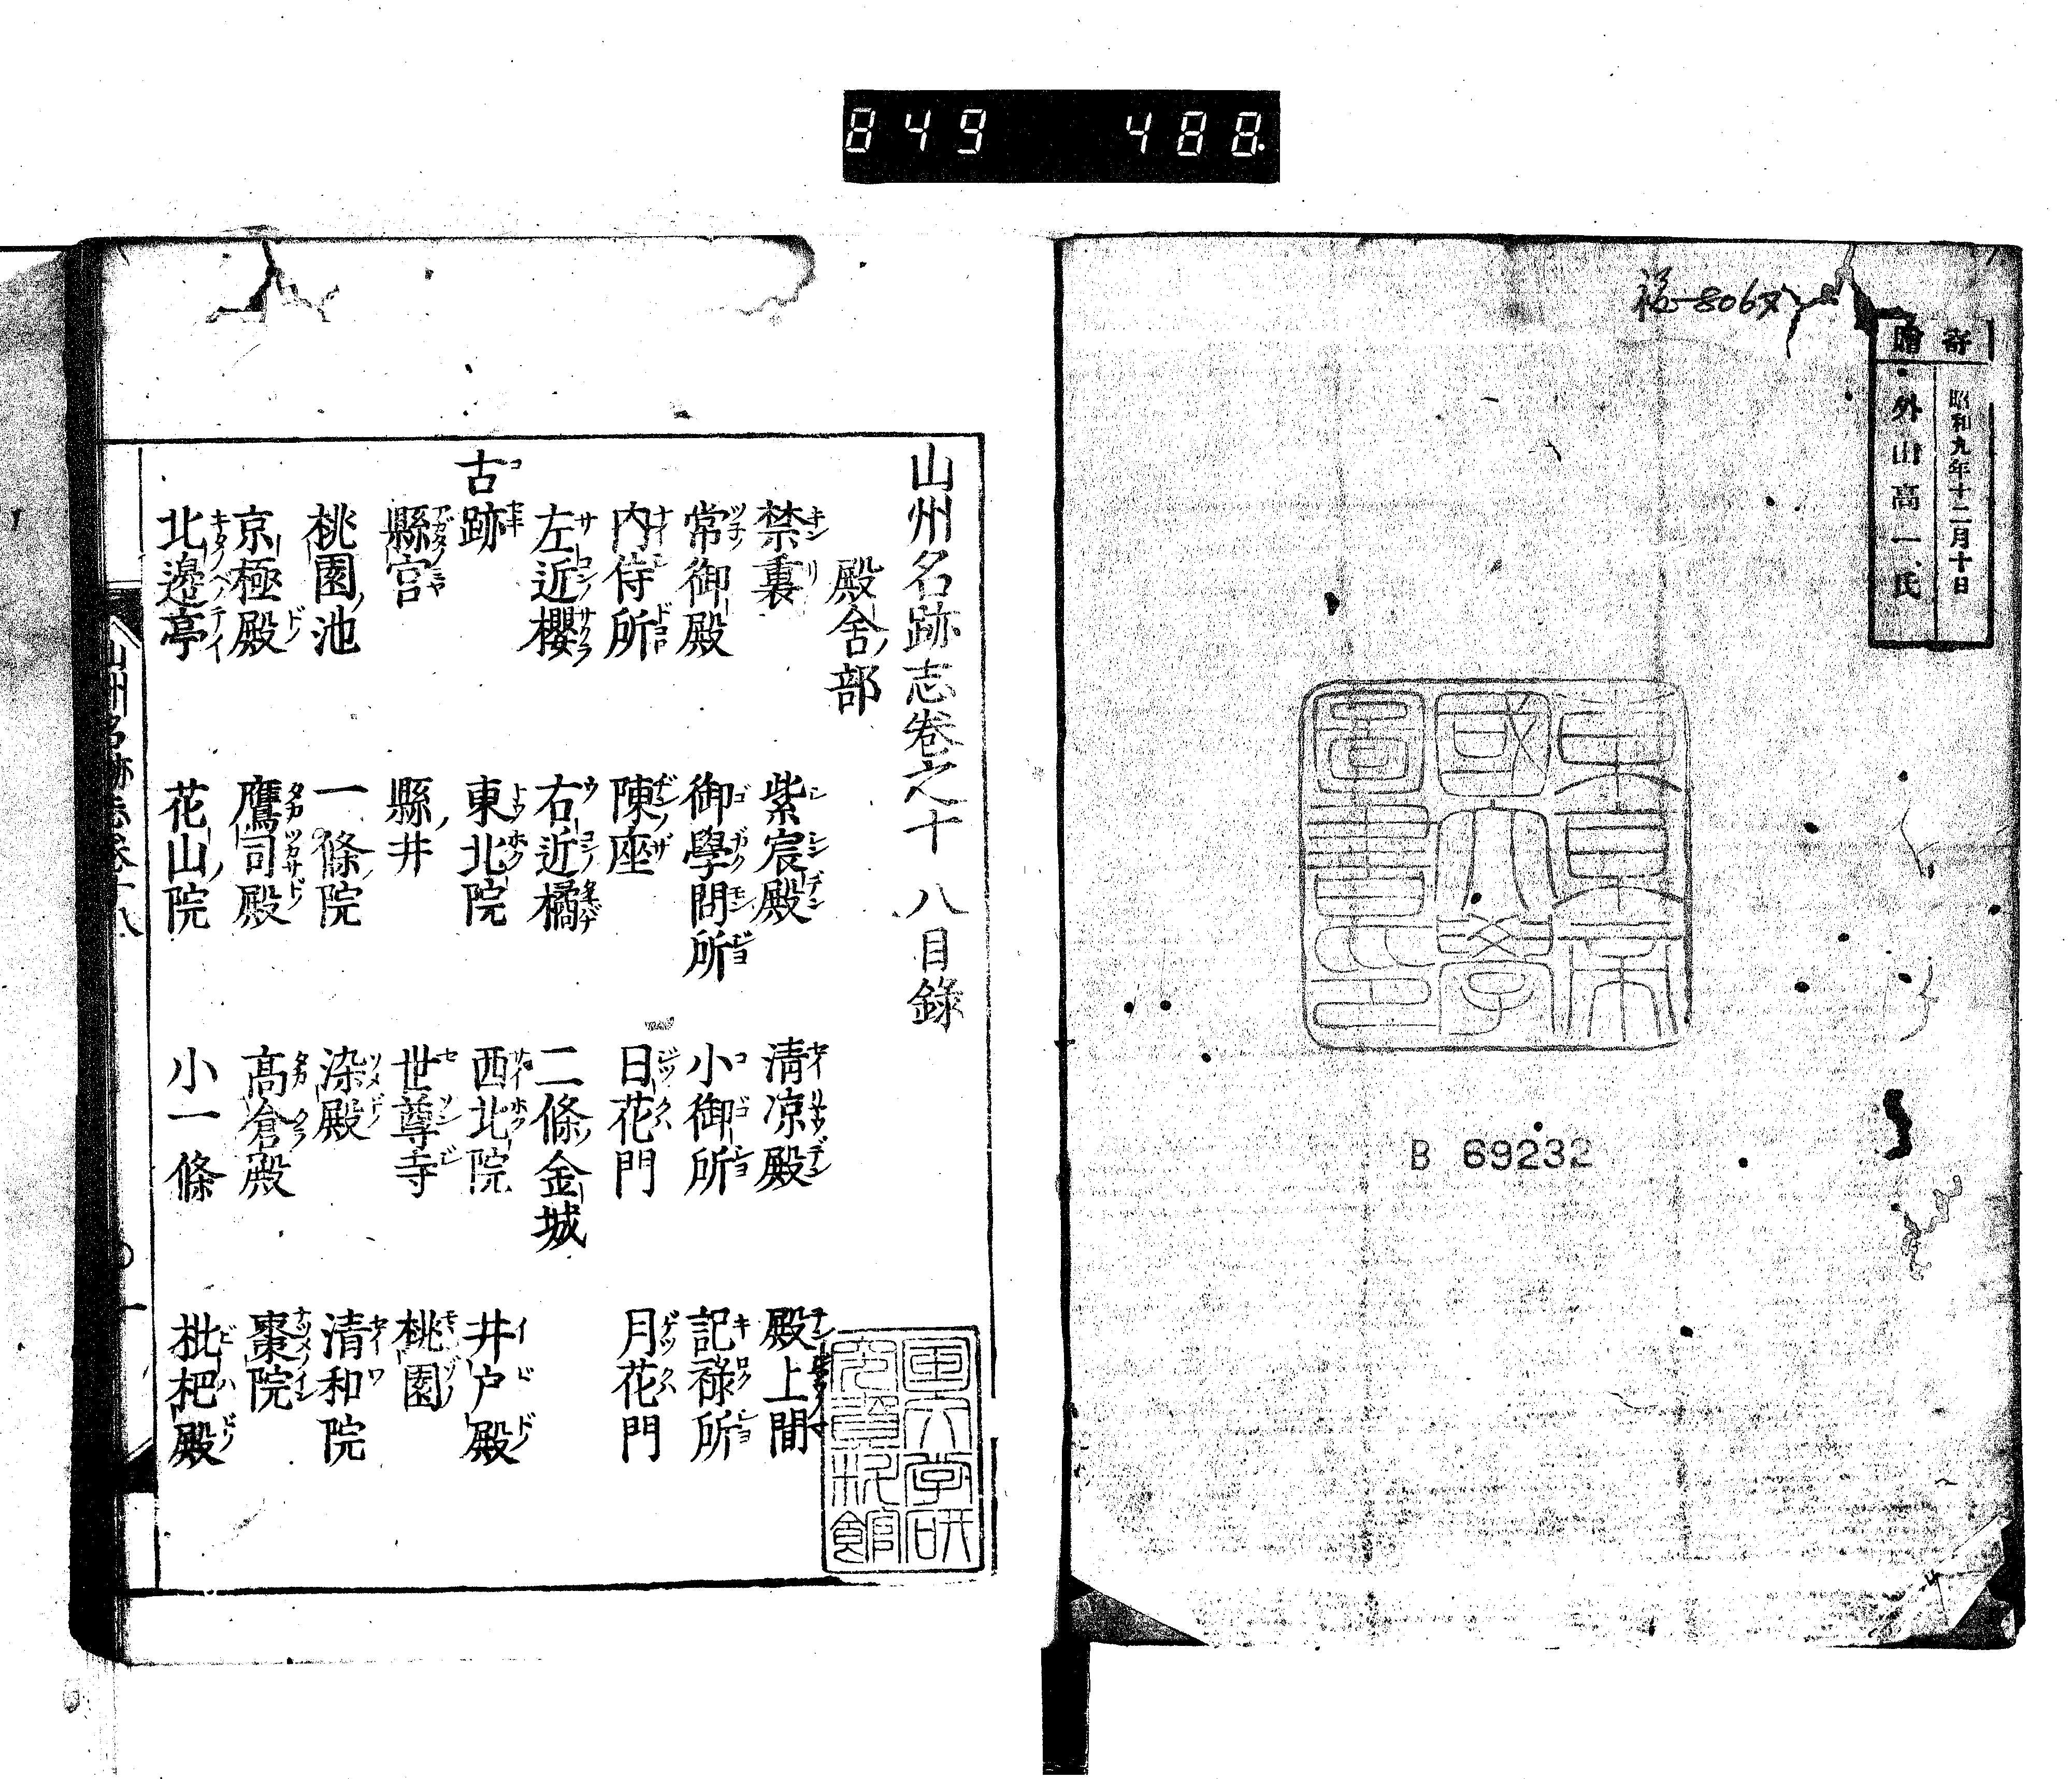 849 488.
寄贈
昭和九年十二月十日
外山高一氏
東京帝
國大學
圖書之印
B 69232
山州名跡志卷之十八目錄
殿舍ノ部
禁裏 紫宸殿 清凉殿 殿上間
常御殿 御學問所 小御所 記祿所
内侍所 陳座 日花門 月花門
左近櫻 右近橘 二條ノ金城
古跡 東北院 西北院 井戸殿
縣宮 縣ノ井 世尊寺 桃園
桃園ノ池 一條ノ院 染殿 清和院
京極殿 鷹司殿 高倉殿 棗院
北邊亭 花山ノ院 小一條 枇杷殿
山州名跡志卷十八
〇 一